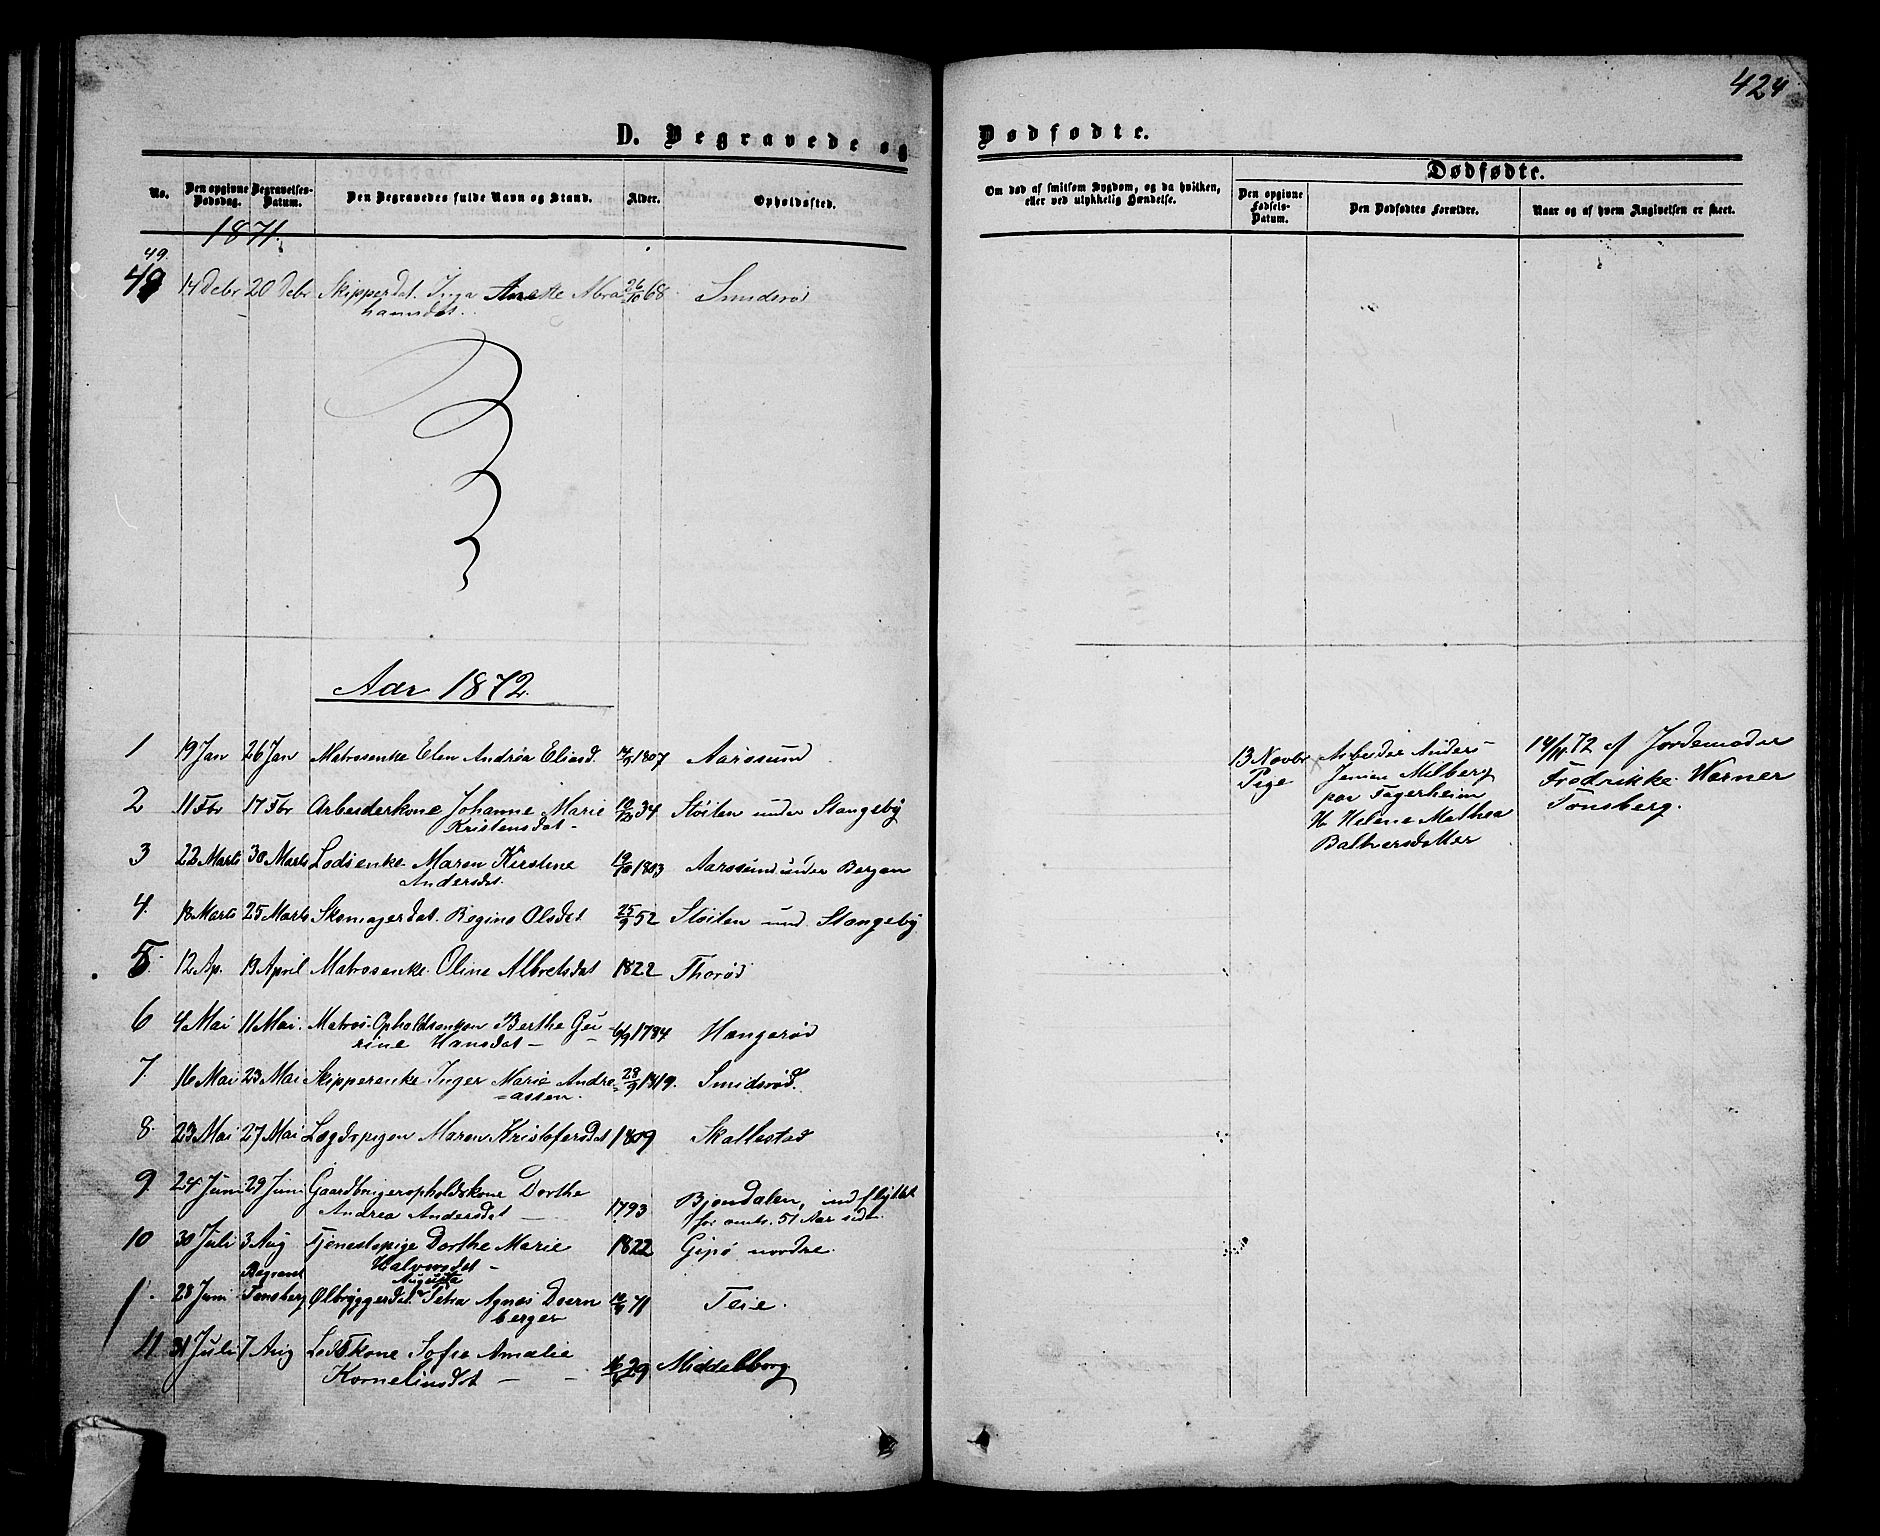 424
D. Begravede og Dødfødte.
No.
Den opgivne Dødsdag.
Begravelses-Datum.
Den Begravedes fulde Navn og Stand.
Alder.
Opholdssted.
Om død af smitsom Sygdom, og da hvilken, eller ved ulykkelig Hændelse.
Dødfødte.
Den opgivne Fødsels-Datum.
Den Dødfødtes Forældre.
Naar og af hvem Angivelsen er skeet.
1871.
49.
49 14 Debr 20 Debr Skipperdat. Inga Anette Abra 26/10 68 Smidsrød
hamsdat.
Aar 1872.
1 19 Jan 26 Jan Matrosenke Elen Andrea Eliasd. 1807 Aarøsund
2 11 Fbr 17 Fbr Arbeiderkone Johanne Marie 34 Støiten under Stangeby
Kristensdat -
3 22 Marts 30 Marts Lodsenke Maren Kirstine 1803 Aarøsund under Bergan
Andersdat.
4. 18 Marts 25 Marts Skomagerdat. Regine Olsdat 25/9 52 Støiten und. Stangeby
5. 12 Ap. 19 April Matrosenke. Oline Albretsdat 1822 Thorød
6 4 Mai 11 Mai. Matros. Opholdsenken Berthe Gu 6/9 1784 Hængerød
rine Hansdat -
7. 16 Mai 23 Mai Skipperenke Inger Marie Andre 28/9 1819. Smidsrød.
=assen.
8. 23 Mai 27 Mai Lægdspigen Maren Kristofersdat 1809 Skallestad
9 24 Juni 29 Juni Gaardbrugeropholdskone Dorthe
Andrea Andersdat 1793 Bjøndalen, indflyttet
for omtr. 51 Aar sidn.
10 30 Juli 3 Aug Tjenestepige Dorthe Marie 1822 Gipø nordre.
Halvorsdat -
Begravet Augusta
1. 28 Juni Tønsberg Ølbryggerdat. Petra Agnes Doorn 71 Teie.
berger
11 31 Juli 7 Aug Lodskone Sofie Amalie
Kornelinsdat - - 29 Middelborg
13 Novbr
Pige
Arbeider Anders
Jensen Melberg
paa Fagerheim
H. Helene Mathea
Baltsersdatter
14/11 72 af Jordemoder
Fredrikke Werner
Tønsberg.